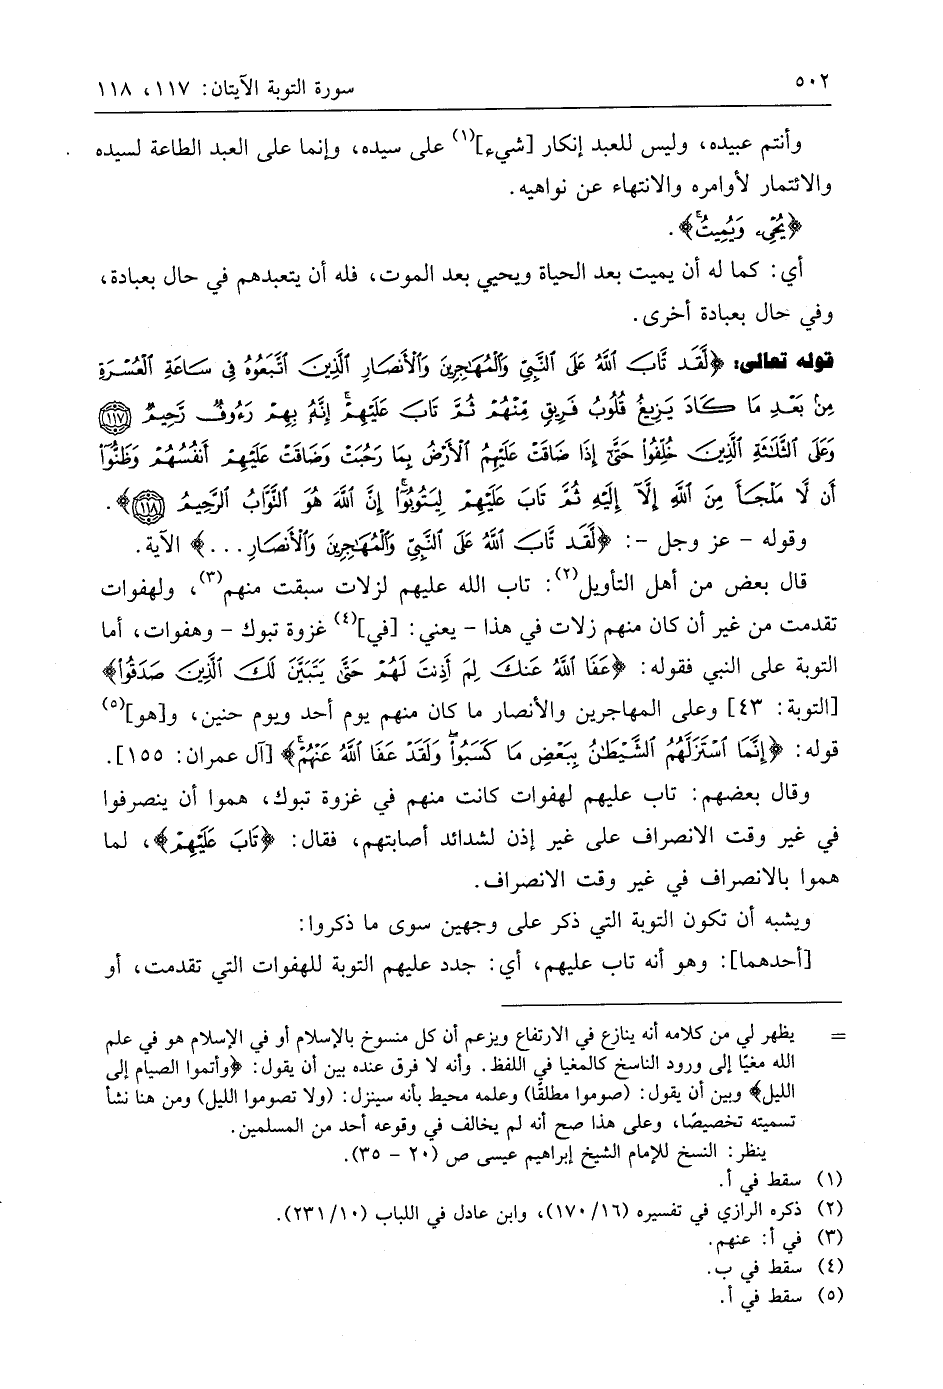 ٥٠٢
سورة التوبة الآيتان: ١١٧، ١١٨
وأنتم عبيده، وليس للعبد إنكار [شيء](١) على سيده، وإنما على العبد الطاعة لسيده
والائتمار لأوامره والانتهاء عن نواهيه.
﴿يُحْيِۦ وَيُمِيتُۚ﴾.
أي: كما له أن يميت بعد الحياة ويحيي بعد الموت، فله أن يتعبدهم في حال بعبادة،
وفي حال بعبادة أخرى.
قوله تعالى: ﴿لَّقَد تَّابَ ٱللَّهُ عَلَى ٱلنَّبِيِّ وَٱلْمُهَٰجِرِينَ وَٱلْأَنصَارِ ٱلَّذِينَ ٱتَّبَعُوهُ فِي سَاعَةِ ٱلْعُسْرَةِ
مِنۢ بَعْدِ مَا كَادَ يَزِيغُ قُلُوبُ فَرِيقٍ مِّنْهُمْ ثُمَّ تَابَ عَلَيْهِمْۚ إِنَّهُۥ بِهِمْ رَءُوفٌ رَّحِيمٌ ﴿١١٧﴾
وَعَلَى ٱلثَّلَٰثَةِ ٱلَّذِينَ خُلِّفُوا۟ حَتَّىٰٓ إِذَا ضَاقَتْ عَلَيْهِمُ ٱلْأَرْضُ بِمَا رَحُبَتْ وَضَاقَتْ عَلَيْهِمْ أَنفُسُهُمْ وَظَنُّوٓا۟
أَن لَّا مَلْجَأَ مِنَ ٱللَّهِ إِلَّآ إِلَيْهِ ثُمَّ تَابَ عَلَيْهِمْ لِيَتُوبُوٓا۟ۚ إِنَّ ٱللَّهَ هُوَ ٱلتَّوَّابُ ٱلرَّحِيمُ ﴿١١٨﴾﴾.
وقوله - عز وجل -: ﴿لَّقَد تَّابَ ٱللَّهُ عَلَى ٱلنَّبِيِّ وَٱلْمُهَٰجِرِينَ وَٱلْأَنصَارِ...﴾ الآية.
قال بعض من أهل التأويل(٢): تاب الله عليهم لزلات سبقت منهم(٣)، ولهفوات
تقدمت من غير أن كان منهم زلات في هذا - يعني: [في](٤) غزوة تبوك - وهفوات، أما
التوبة على النبي فقوله: ﴿عَفَا ٱللَّهُ عَنكَ لِمَ أَذِنتَ لَهُمْ حَتَّىٰ يَتَبَيَّنَ لَكَ ٱلَّذِينَ صَدَقُوا۟﴾
[التوبة: ٤٣] وعلى المهاجرين والأنصار ما كان منهم يوم أحد ويوم حنين، و[هو](٥)
قوله: ﴿إِنَّمَا ٱسْتَزَلَّهُمُ ٱلشَّيْطَٰنُ بِبَعْضِ مَا كَسَبُوا۟ۖ وَلَقَدْ عَفَا ٱللَّهُ عَنْهُمْۗ﴾ [آل عمران: ١٥٥].
وقال بعضهم: تاب عليهم لهفوات كانت منهم في غزوة تبوك، هموا أن ينصرفوا
في غير وقت الانصراف على غير إذن لشدائد أصابتهم، فقال: ﴿تَابَ عَلَيْهِمْ﴾، لما
هموا بالانصراف في غير وقت الانصراف.
ويشبه أن تكون التوبة التي ذكر على وجهين سوى ما ذكروا:
[أحدهما]: وهو أنه تاب عليهم، أي: جدد عليهم التوبة للهفوات التي تقدمت، أو
= يظهر لي من كلامه أنه ينازع في الارتفاع ويزعم أن كل منسوخ بالإسلام أو في الإسلام هو في علم
الله مغيًا إلى ورود الناسخ كالمغيا في اللفظ. وأنه لا فرق عنده بين أن يقول: ﴿وأتموا الصيام إلى
الليل﴾ وبين أن يقول: (صوموا مطلقًا) وعلمه محيط بأنه سينزل: (ولا تصوموا الليل) ومن هنا نشأ
تسميته تخصيصًا، وعلى هذا صح أنه لم يخالف في وقوعه أحد من المسلمين.
ينظر: النسخ للإمام الشيخ إبراهيم عيسى ص (٢٠ - ٣٥).
(١) سقط في أ.
(٢) ذكره الرازي في تفسيره (١٦/ ١٧٠)، وابن عادل في اللباب (١٠/ ٢٣١).
(٣) في أ: عنهم.
(٤) سقط في ب.
(٥) سقط في أ.